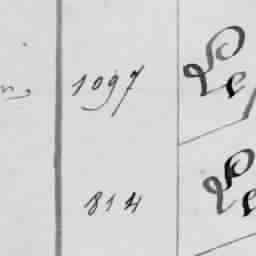 1097 Le
814 Le